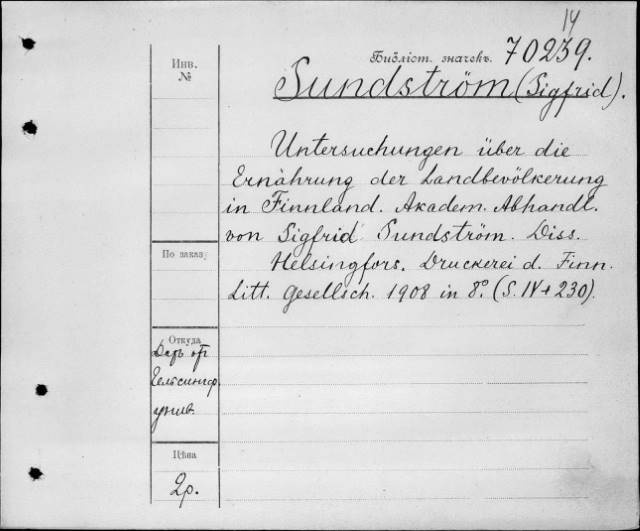 14
Инв.
№
Библіот. значекъ. 70239.
Sundström (Sigfrid).
Untersuchungen über die
Ernährung der Landbevölkerung
in Finnland. Akadem. Abhandl.
von Sigfrid Sundström. Diss.
Helsingfors. Druckerei d. Finn.
Litt. Gesellsch. 1908 in 8°. (S. IV + 230).
По заказу
Откуда
Даръ от
Гельсингф.
унив.
Цѣна
2р.